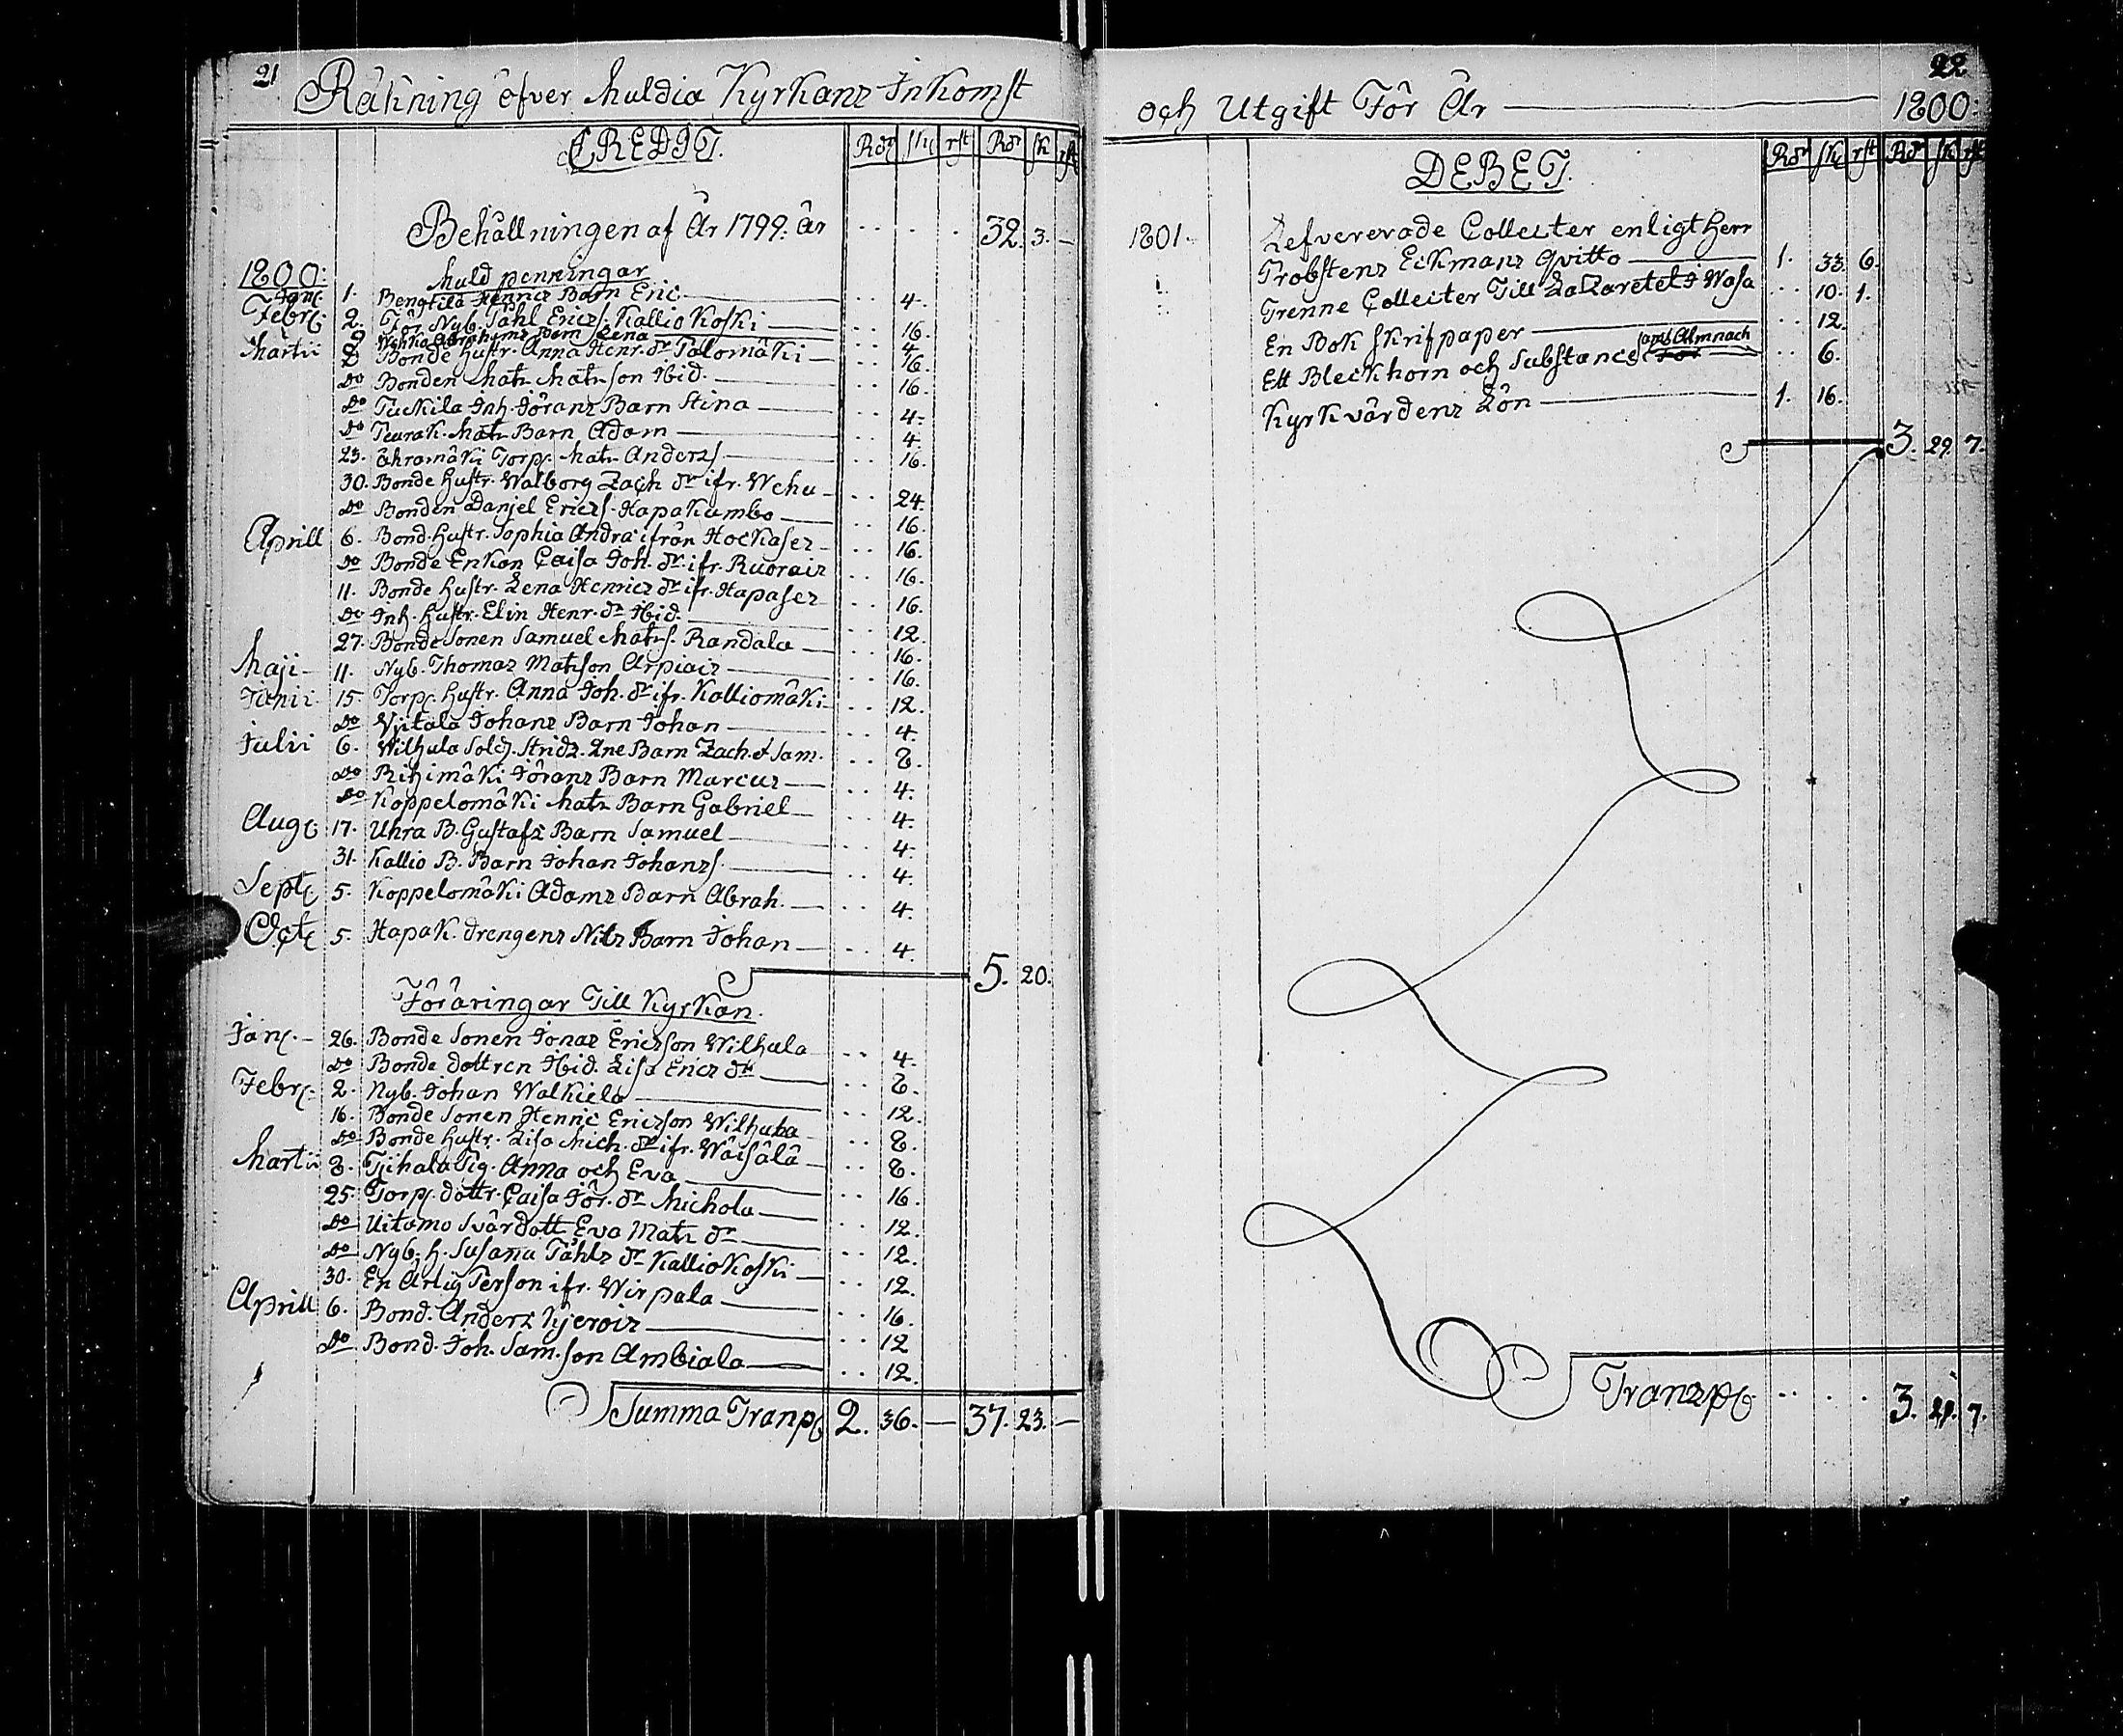 21
Räkning öfver Muldia Kyrkans Inkomst
CREDIT. Rdr sk rst Rdr sk rst
Behållningen af År 1799. är .. . . 32. 3. —
1800: Muld penningar
Janc. 1. Bengtila Henrics Barn Eric — .. 4.
Febrc 2. För Nyb. Påhl Erics. Kalliokoski — .. 16.
9. Abrahams Barn Lena — .. 4.
Martii 2. Bonde Hustr. Anna Henr. dr Palomäki — .. 16.
do Bonden Mats Matsson Ibid. — .. 16.
do Packila Inh. Jörans Barn Stina — .. 4.
do Peurak. Mats Barn Adam — .. 4.
23. Ahramäki Torp. Mats Anders. — .. 16.
30. Bonde Hustr. Walborg Zach dr ifr. Wehu — .. 24.
do Bonden Danjel Erics. Hapakumbo — .. 16.
Aprill 6. Bond. Hustr. Sophia Andra ifrån Hockaser — .. 16.
do Bonde Enkan Caisa Joh. dr. ifr. Ruorais .. 16.
11. Bonde Hustr. Lena Henrics dr ifr. Hapaser .. 16.
do Inh. Hustr. Elin Henr. dr Ibid. — .. 12.
27. Bonde Sonen Samuel Mats. Randala — .. 16.
Maji — 11. Nyb. Thomas Matsson Arpiais — .. 16.
Junii 15. Torp. Hustr. Anna Joh. dr ifr. Kalliomäki — .. 12.
do Vitala Johans Barn Johan — .. 4.
Julii 6. Wilhula Sold. Strids. 2ne Barn Zach. & Sam. .. 8.
do Rihimäki Jörans Barn Marcus — .. 4.
do Koppelomäki Mats Barn Gabriel — .. 4.
Augc 17. Uhra B. Gustafs Barn Samuel — .. 4.
31. Kallio B. Barn Johan Johans. — .. 4.
Septc 5. Koppelomäki Adams Barn Abrah. — .. 4.
Octc 5. Hapak. drengens Nils Barn Johan — .. 4.
5. 20.
Föräringar Till Kyrkan.
Janc. — 26. Bonde Sonen Jonas Ericsson Wilhula .. 4.
do Bonde dottren Ibid. Lisa Erics dr — .. 8.
Febrc. 2. Nyb. Johan Walkiela — .. 12.
16. Bonde Sonen Henric Ericsson Wilhula .. 8.
do Bonde Hustr. Lisa Mich. dr ifr. Wäisälä — .. 8.
Martii 8. Pihala Pig. Anna och Eva — .. 16.
25. Torp. dottr. Caisa Jör. dr Michola — .. 12.
do Uitamo Svärdott. Eva Mats dr — .. 12.
do Nyb. H. Susana Påhls dr Kalliokoski — .. 12.
30. En Ärlig Person ifr. Wirpala — .. 16.
Aprill 6. Bond. Anders — .. 12
do Bond. Joh. Sam. son Ambiala — .. 12.
Summa Tranp 2. 36. — 37. 23. —
22
och Utgift För År — 1800:
DEBET. Rdr sk rst Rdr sk rst
1801. Lefvererade Collecter enligt Herr
Probstens Eckmans Qvitto — 1. 33. 6.
Trenne Collecter Till Lazaretet I Wasa .. 10. 1.
En Bok Skrifpaper — .. 12.
Ett Bleckhorn och Substance samt Almnach .. 6.
Kyrkvärdens Lön — 1. 16.
3. 29. 7.
Transp .. . . 3. 29. 7.